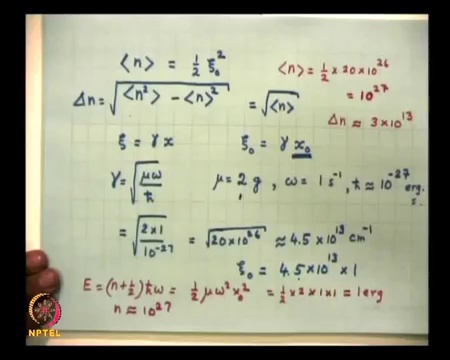 ⟨n⟩ = 1/2 ξ₀²
⟨n⟩ = 1/2 × 20 × 10²⁶
= 10²⁷
Δn = √(⟨n²⟩ − ⟨n⟩²) = √⟨n⟩
Δn ≈ 3 × 10¹³
ξ = γ x    ξ₀ = γ x₀
γ = √(μω/ħ)    μ = 2 g , ω = 1 s⁻¹, ħ ≈ 10⁻²⁷ erg.
s.
= √(2×1/10⁻²⁷) = √(20×10²⁶) ≈ 4.5 × 10¹³ cm⁻¹
ξ₀ = 4.5 × 10¹³ × 1
E = (n+1/2) ħω = 1/2 μω²x₀² = 1/2 × 2 × 1 × 1 = 1 erg
n ≈ 10²⁷
NPTEL